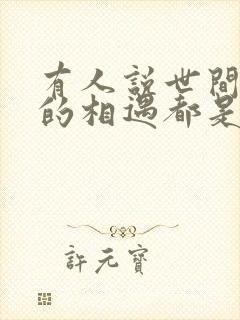 有人说世間
的相遇都是
許元寶